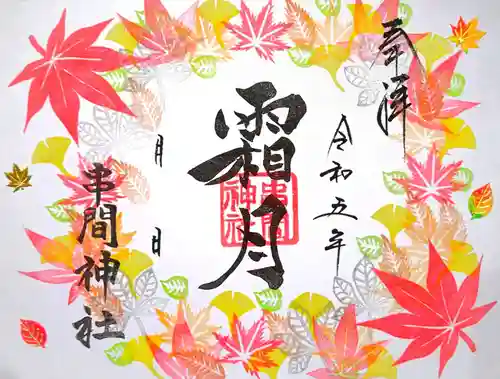 奉拝
令和五年
霜月
串間
神社
月 日
串間神社